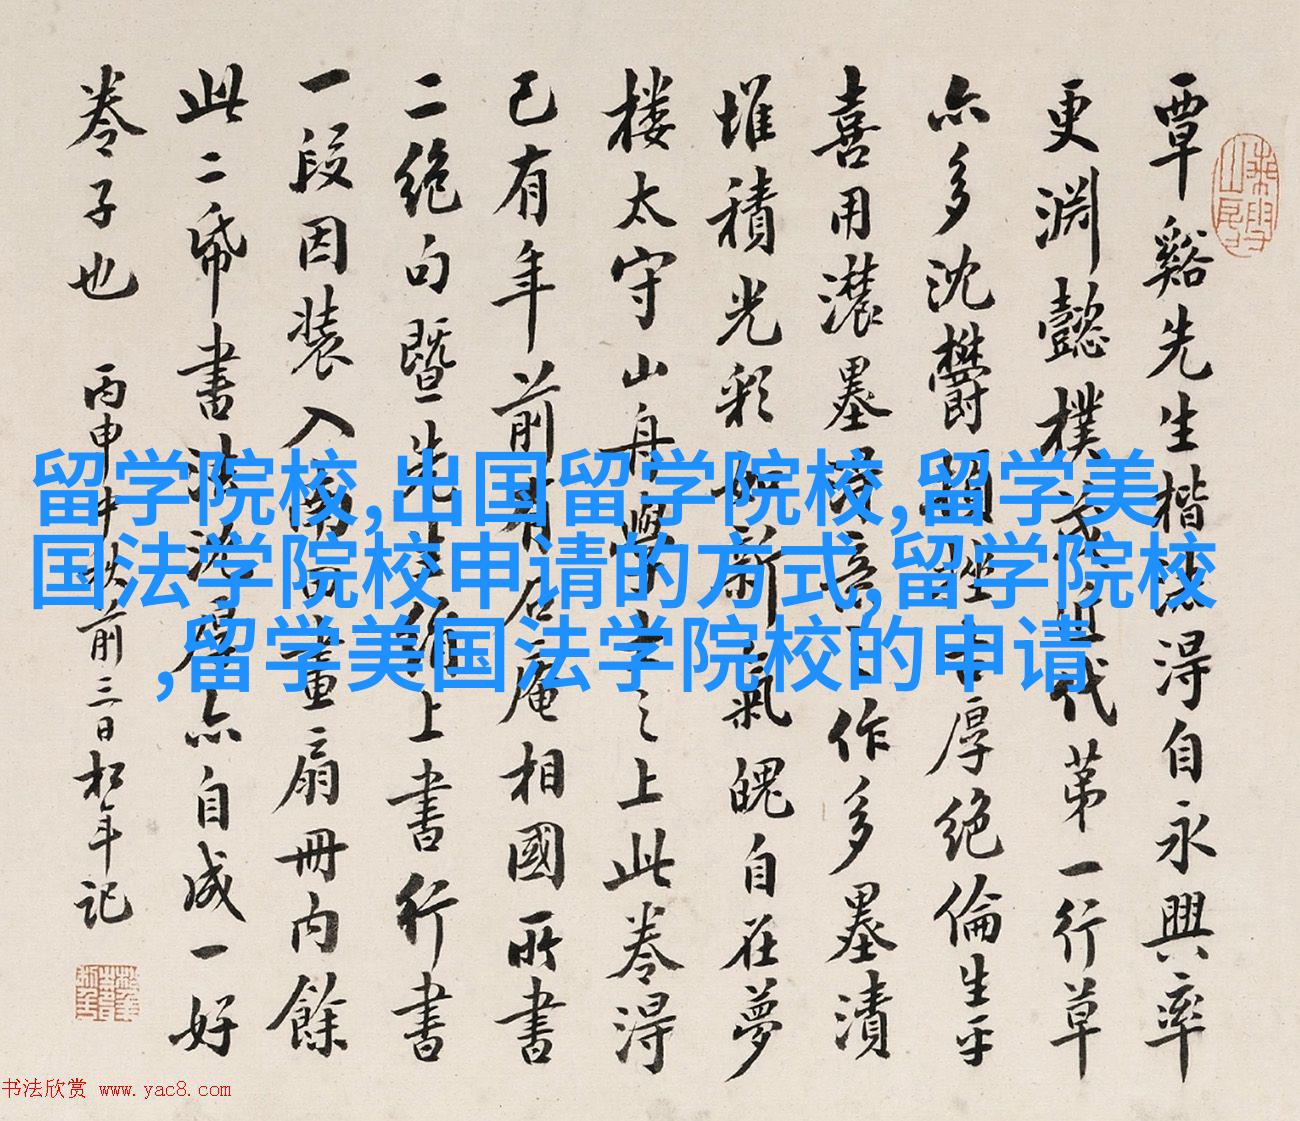 覃谿先生楷法得自永興率
更淵懿樸茂近代苐一行草
亦多沈欝頓挫中厚绝倫生平
喜用濃墨得意作多墨漬
堆積光彩如新氣魄自在夢
楼太守山舟學士之上此卷得
已有年前有石庵相國所書
二绝句暨先生上書行書
一段因装入畫扇冊内餘
此二帋書法沈厚亦自成一好
卷子也 丙申中秋前三日松年記
留学院校,出国留学院校,留学美
国法学院校申请的方式,留学院校
,留学美国法学院校的申请
书法欣赏 www.yac8.com